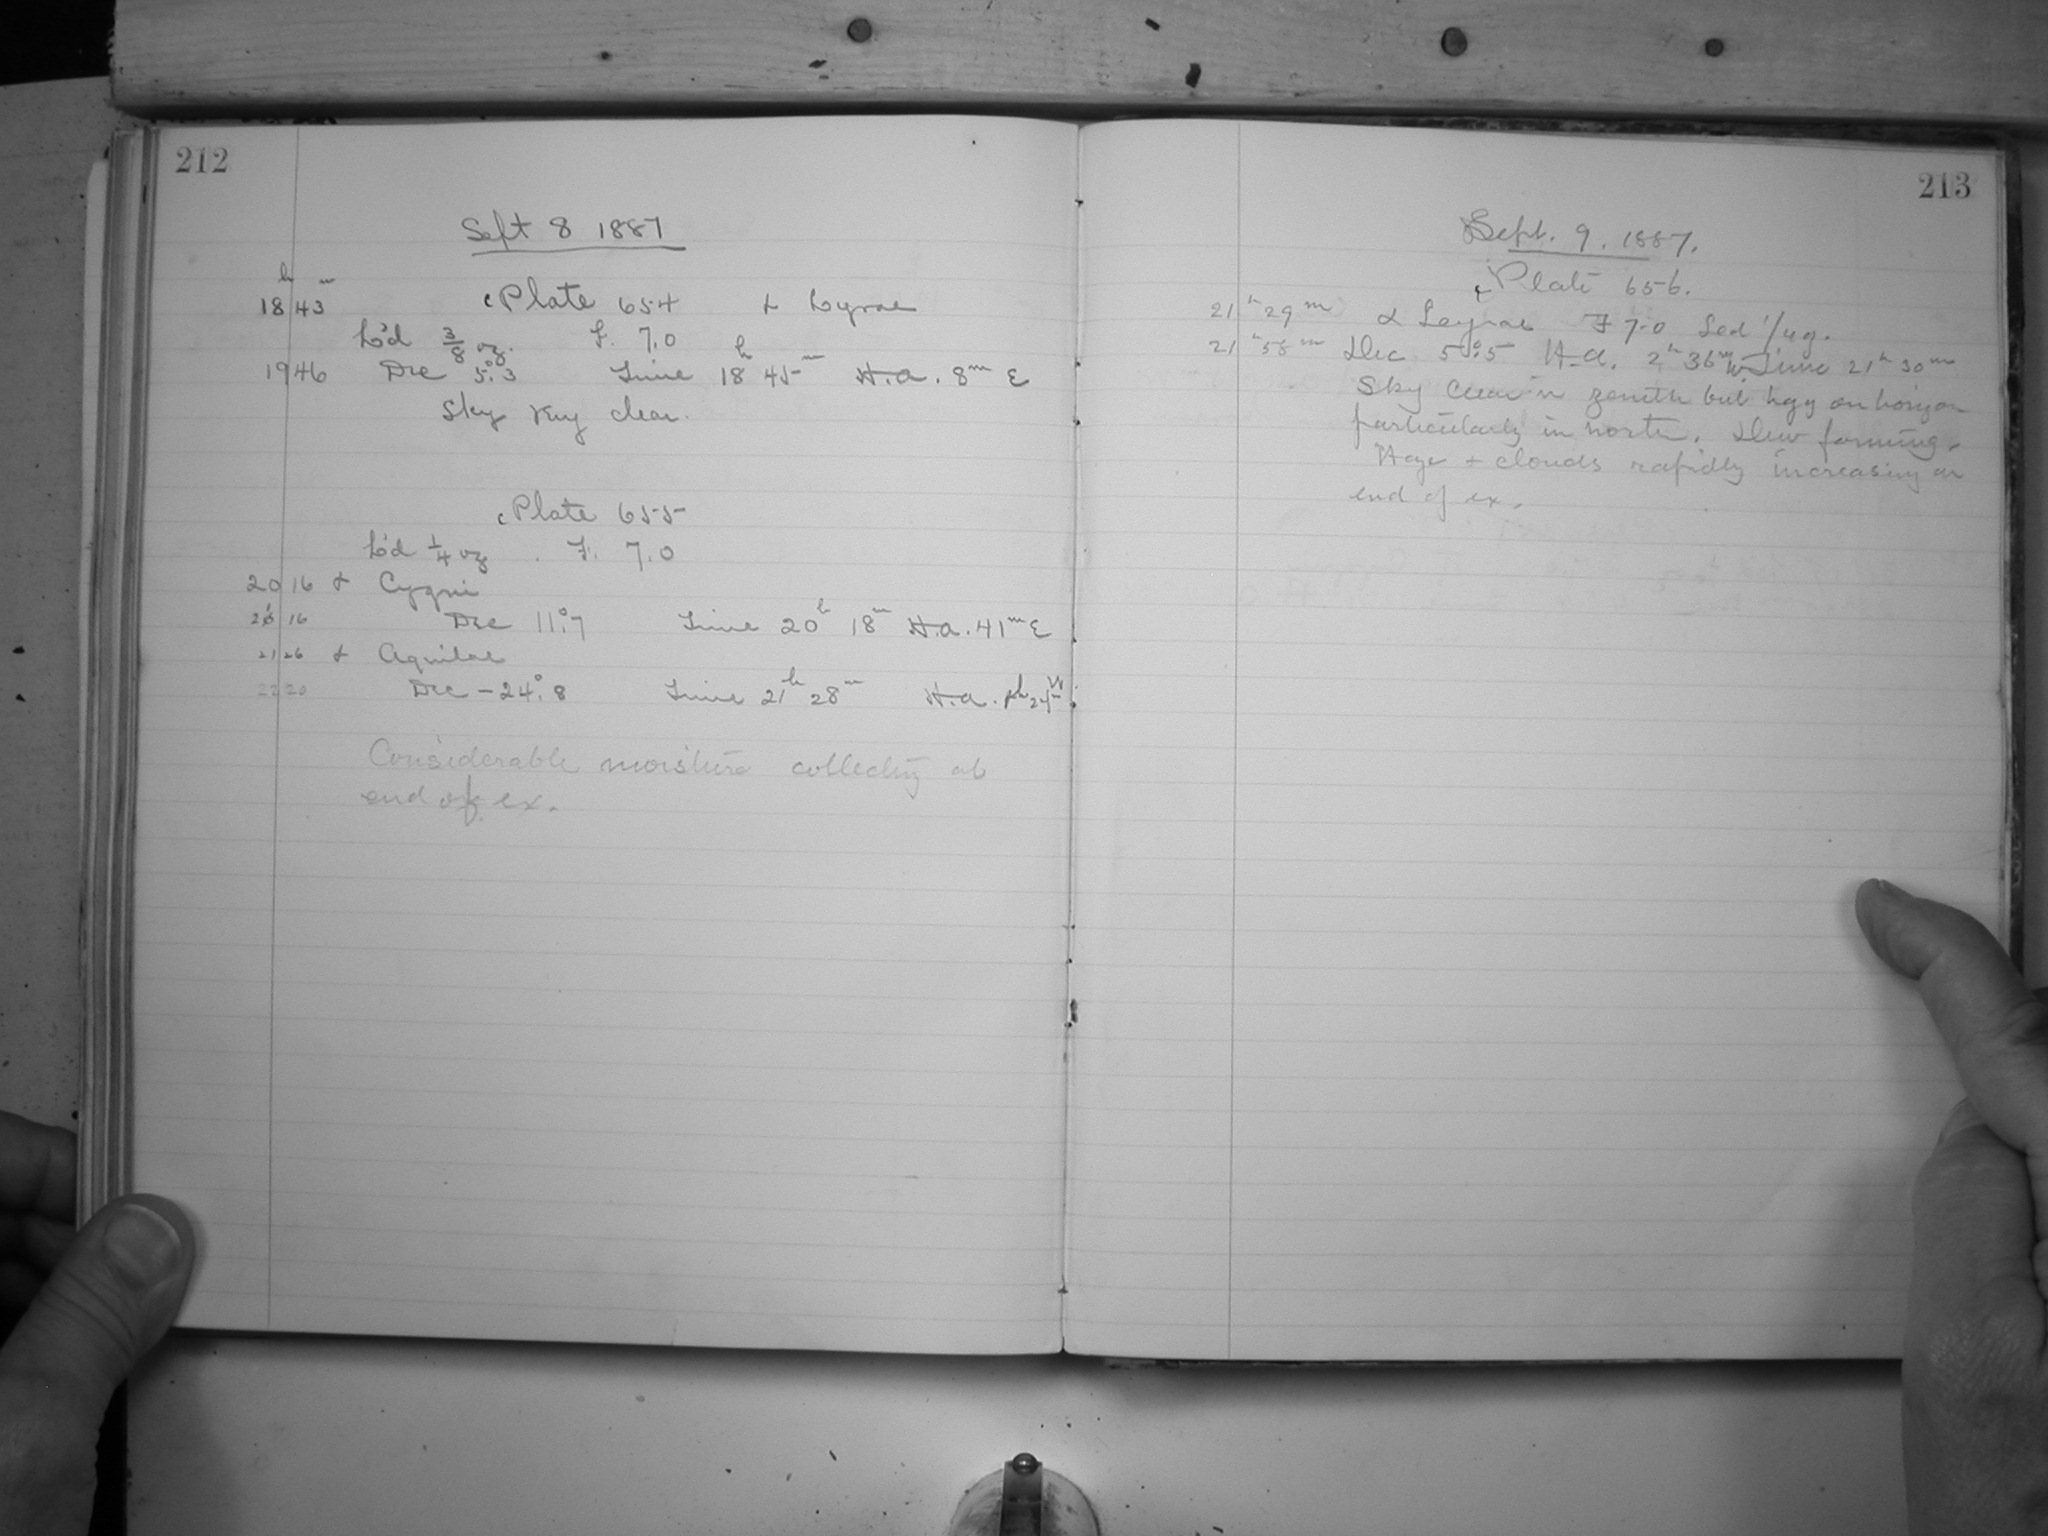 212
Sept 8 1887
18h 43m Plate 654 α Lyrae
L'd 3/8 oz. F. 7.0
19 46 Dec 5°.3 Time 18h 45m H.a. 8m E
Sky very clear.
Plate 655
L'd 1/4 oz. F. 7.0
20 16 α Cygni
16 Dec 11°.7 Time 20h 18m H.a. 41m E
21 26 α Aquilae
22 20 Dec -24°.8 Time 21h 28m H.a.
Considerable moisture collecting at
end of ex.
213
Sept. 9. 1887.
Plate 656.
21h 29m α Leyrae F 7.0 Led 1/4 g.
21h 58m Dec 5°.5 H.a. 2h 36m W Time 21h 30m
Sky clear in zenith but hzy on horizon
particularly in north. Dew forming.
Haze + clouds rapidly increasing on
end of ex.